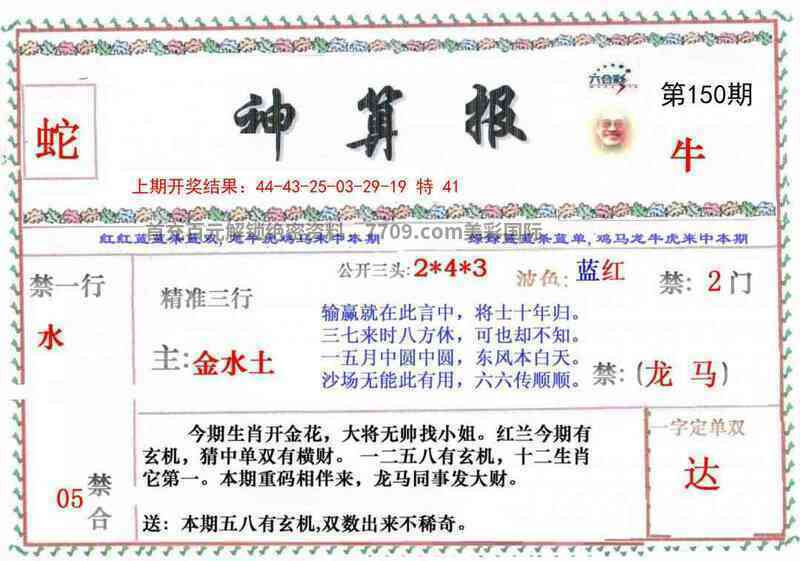 六合彩
第150期
蛇
神算报
牛
上期开奖结果：44-43-25-03-29-19 特 41
首充百元解锁绝密资料，7709.com美彩国际
绿绿蓝蓝杀蓝单,鸡马龙牛虎来中本期
禁一行
水
精准三行
主:金水土
公开三头:2*4*3
波色:蓝红
禁:2门
输赢就在此言中，将士十年归。
三七来时八方休，可也却不知。
一五月中圆中圆，东风本白天。
沙场无能此有用，六六传顺顺。
禁:(龙 马)
05禁合
今期生肖开金花，大将无帅找小姐。红兰今期有
玄机，猜中单双有横财。一二五八有玄机，十二生肖
它第一。本期重码相伴来，龙马同事发大财。
送：本期五八有玄机,双数出来不稀奇。
一字定单双
达